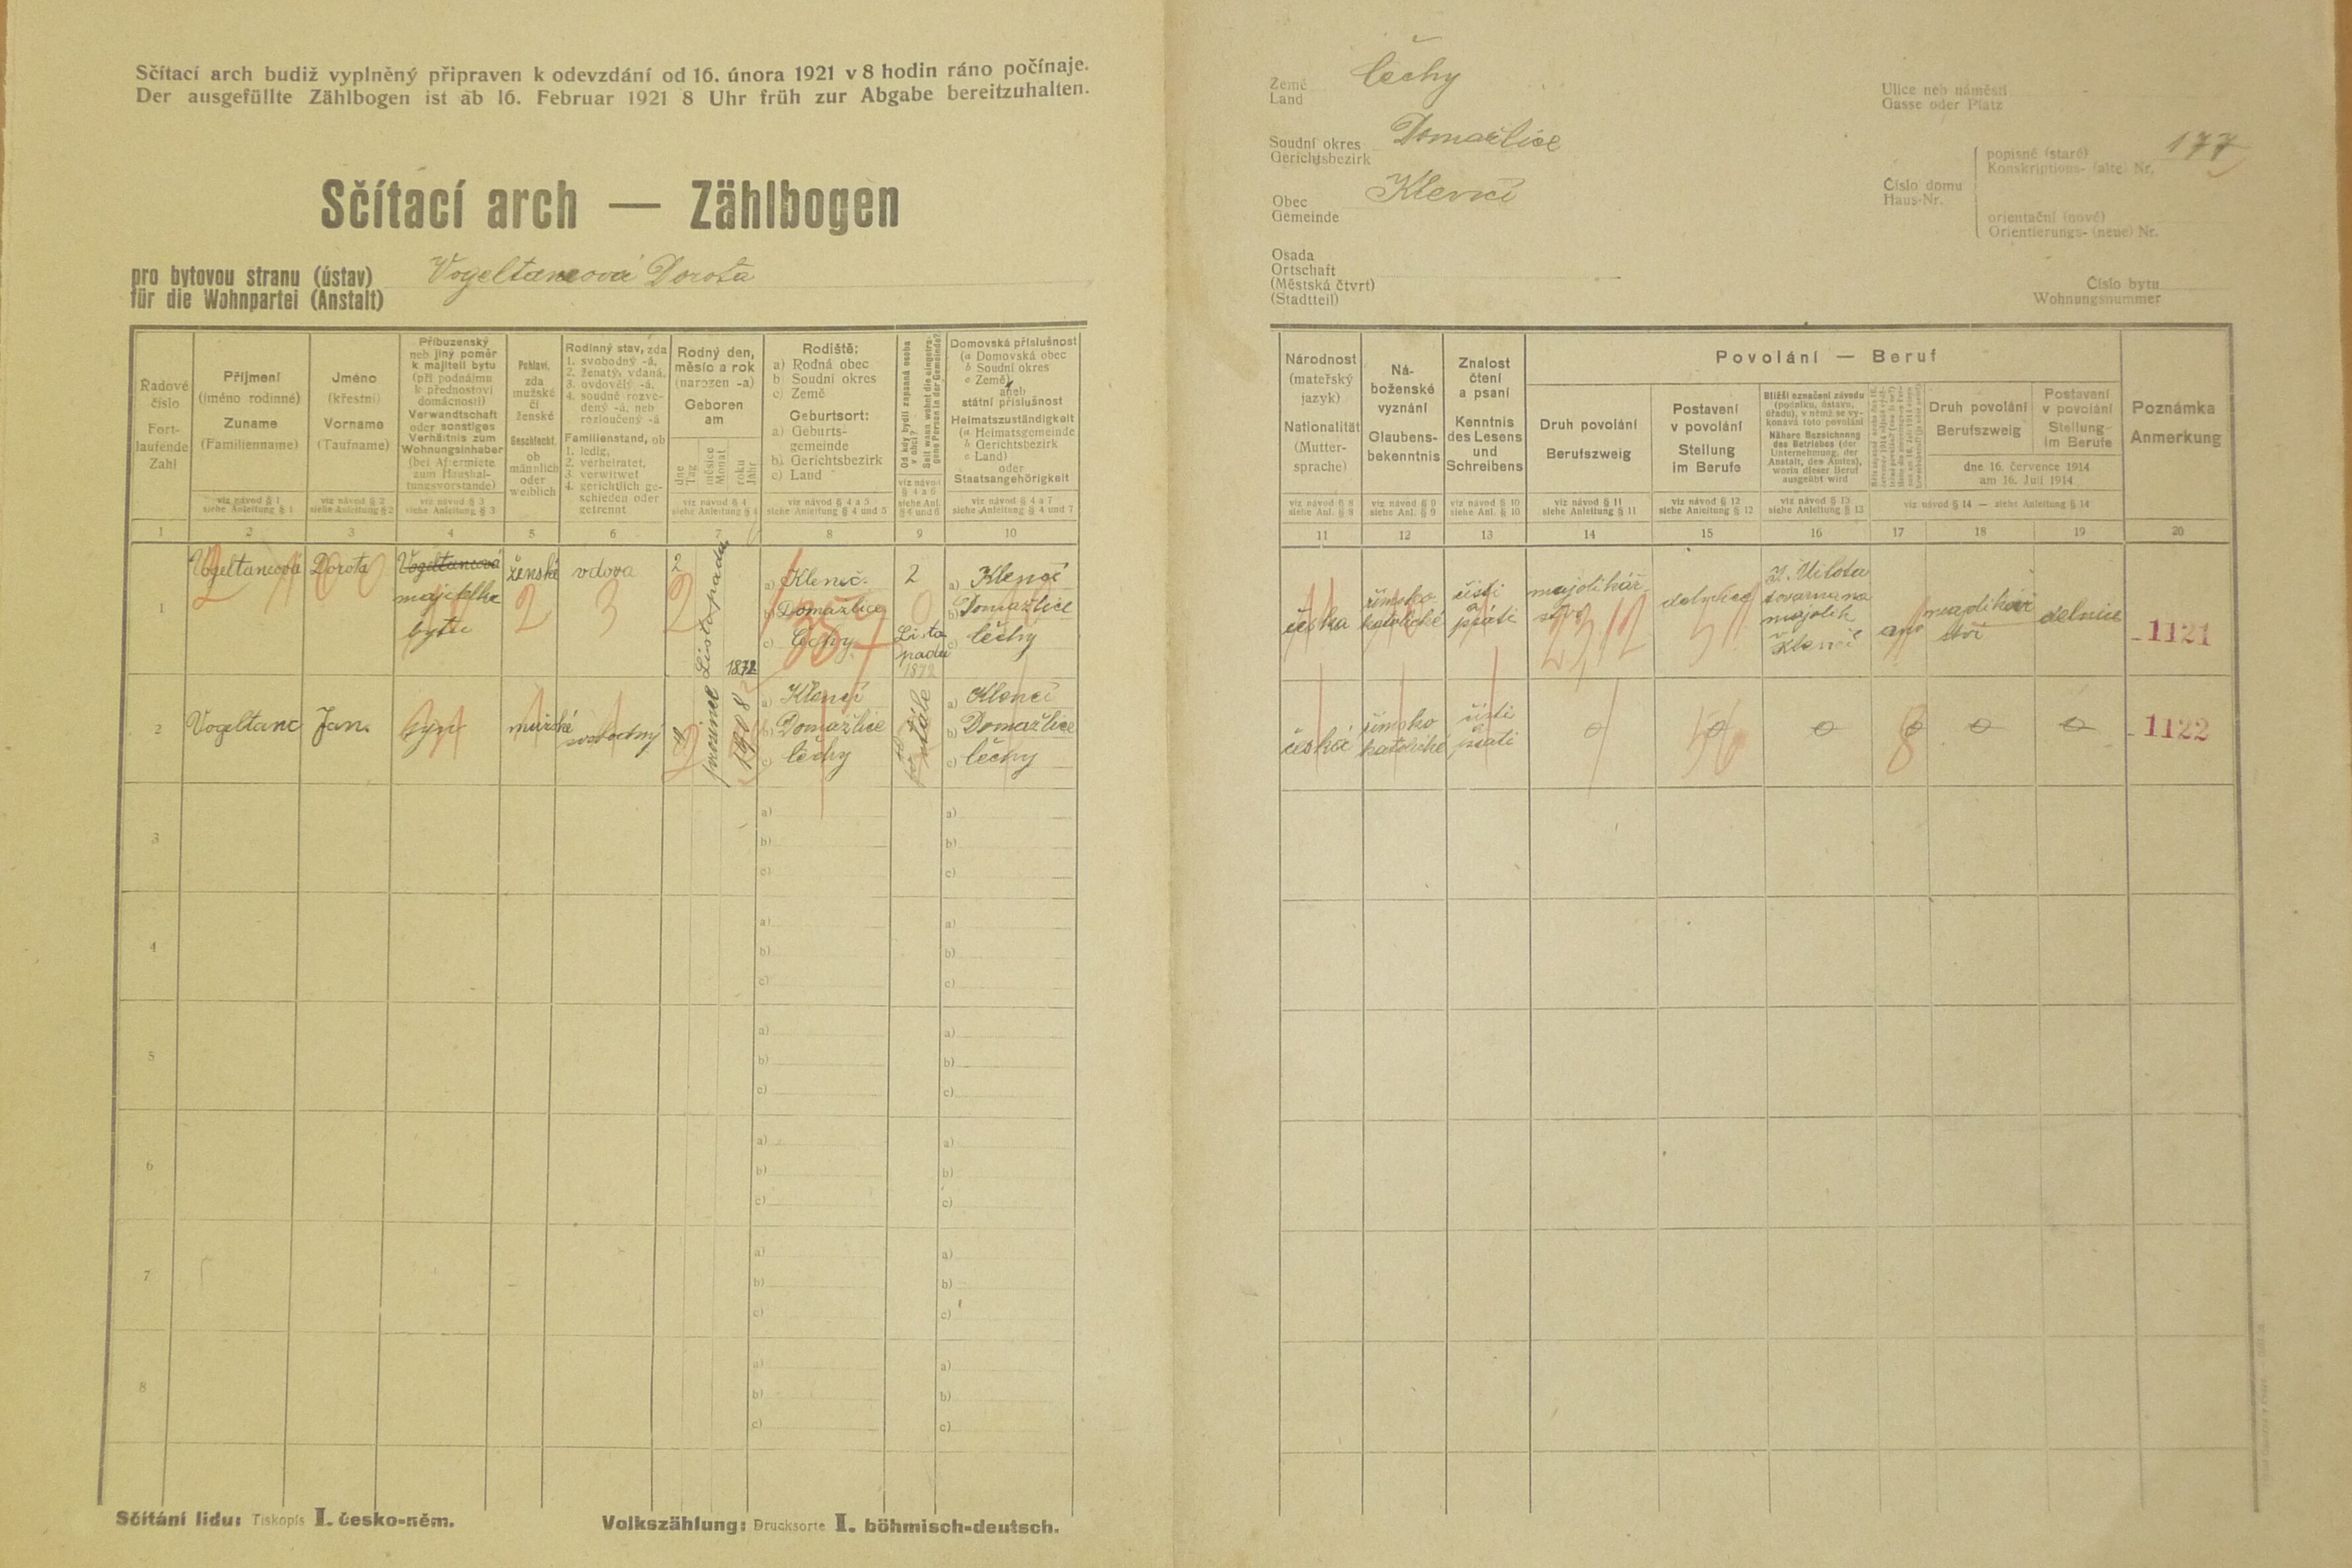 Sčítací arch budiž vyplněný připraven k odevzdání od 16. února 1921 v 8 hodin ráno počínaje.
Der ausgefüllte Zählbogen ist ab 16. Februar 1921 8 Uhr früh zur Abgabe bereitzuhalten.
Sčítací arch — Zählbogen
pro bytovou stranu (ústav)
für die Wohnpartei (Anstalt)
Vogeltancová Dorota
Řadové číslo
Fort-
laufende
Zahl
Příjmení
(jméno rodinné)
Zuname
(Familienname)
viz návod § 1
siehe Anleitung § 1
Jméno
(křestní)
Vorname
(Taufname)
viz návod § 2
siehe Anleitung § 2
Příbuzenský
neb jiný poměr
k majiteli bytu
(při podnájmu
k přednostovi
domácnosti)
Verwandtschaft
oder sonstiges
Verhältnis zum
Wohnungsinhaber
(bei Aftermiete
zum Haushal-
tungsvorstande)
viz návod § 3
siehe Anleitung § 3
Pohlaví,
zda
mužské
či
ženské
Geschlecht,
ob
männlich
oder
weiblich
Rodinný stav, zda
1. svobodný -á,
2. ženatý, vdaná,
3. ovdovělý -á,
4. soudně rozve-
dený -á, neb
rozloučený -á
Familienstand, ob
1. ledig,
2. verheiratet,
3. verwitwet
4. gerichtlich ge-
schieden oder
getrennt
Rodný den,
měsíc a rok
(narozen -a)
Geboren
am
dne
Tag
měsíce
Monat
roku
Jahr
viz návod § 4
siehe Anleitung § 4
Rodiště:
a) Rodná obec
b) Soudní okres
c) Země
Geburtsort:
a) Geburts-
gemeinde
b) Gerichtsbezirk
c) Land
viz návod § 4 a 5
siehe Anleitung § 4 und 5
Od kdy bydlí zapsaná osoba
v obci?
Seit wann wohnt die eingetra-
gene Person in der Gemeinde?
viz návod
§ 4 a 6
siehe Anl.
§ 4 und 6
Domovská příslušnost
(a Domovská obec
b Soudní okres
c Země)
aneb
státní příslušnost
Heimatszuständigkeit
(a Heimatsgemeinde
b Gerichtsbezirk
c Land)
oder
Staatsangehörigkeit
viz návod § 4 a 7
siehe Anleitung § 4 und 7
1 2 3 4 5 6 7 8 9 10
1
Vogeltancová
Dorota
Vogeltancová
majitelka
bytu
ženské
vdova
2
Listopadu
1872
a) Klenč
b) Domažlice
c) Čechy
2
Listo
padu
1872
a) Klenčí
b) Domažlice
c) Čechy
2
Vogeltanc
Jan.
syn
mužské
svobodný
prosinec
1908
a) Klenčí
b) Domažlice
c) Čechy
stále
a) Klenčí
b) Domažlice
c) Čechy
3
a)
b)
c)
a)
b)
c)
4
a)
b)
c)
a)
b)
c)
5
a)
b)
c)
a)
b)
c)
6
a)
b)
c)
a)
b)
c)
7
a)
b)
c)
a)
b)
c)
8
a)
b)
c)
a)
b)
c)
Sčítání lidu: Tiskopis I. česko-něm.
Volkszählung: Drucksorte I. böhmisch-deutsch.
Země
Land
Čechy
Soudní okres
Gerichtsbezirk
Domažlice
Obec
Gemeinde
Klenčí
Osada
Ortschaft
(Městská čtvrt)
(Stadtteil)
Ulice neb náměstí
Gasse oder Platz
Číslo domu
Haus-Nr.
popisné (staré)
Konskriptions- (alte) Nr.
177
orientační (nové)
Orientierungs- (neue) Nr.
Číslo bytu
Wohnungsnummer
Národnost
(mateřský
jazyk)
Nationalität
(Mutter-
sprache)
viz návod § 8
siehe Anl. § 8
Ná-
boženské
vyznání
Glaubens-
bekenntnis
viz návod § 9
siehe Anl. § 9
Znalost
čtení
a psaní
Kenntnis
des Lesens
und
Schreibens
viz návod § 10
siehe Anl. § 10
Povolání — Beruf
Druh povolání
Berufszweig
viz návod § 11
siehe Anleitung § 11
Postavení
v povolání
Stellung
im Berufe
viz návod § 12
siehe Anleitung § 12
Bližší označení závodu
(podniku, ústavu,
úřadu), v němž se vy-
konává toto povolání
Nähere Bezeichnung
des Betriebes (der
Unternehmung, der
Anstalt, des Amtes),
worin dieser Beruf
ausgeübt wird
viz návod § 13
siehe Anleitung § 13
Druh povolání
Berufszweig
Postavení
v povolání
Stellung
im Berufe
dne 16. července 1914
am 16. Juli 1914
viz návod § 14 — siehe Anleitung § 14
Poznámka
Anmerkung
11 12 13 14 15 16 17 18 19 20
česka
římsko
katolické
čísti
a
psáti
majolikář
ství
továrna na
majolik
Klenčí
ano
majolikář
ství
dělnice
1121
česká
římsko
katolické
čísti
psáti
1122